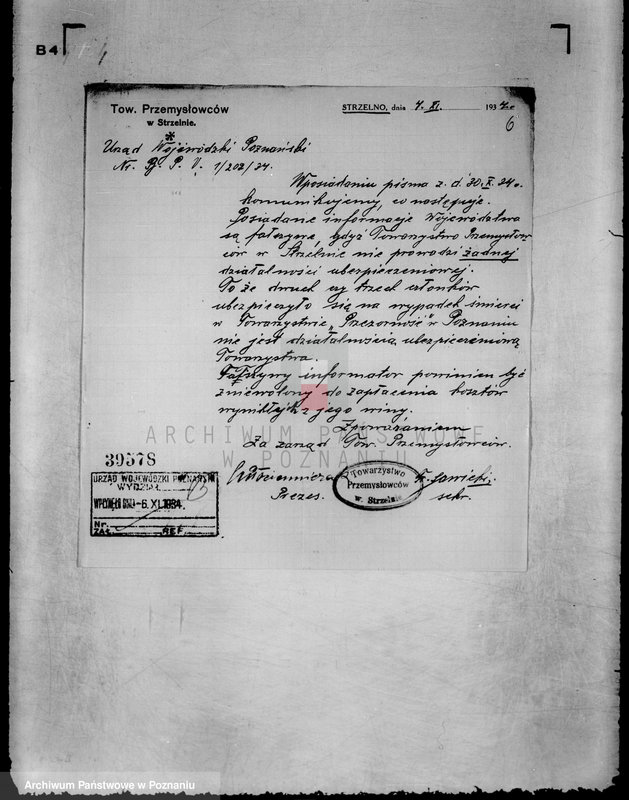 B4
Tow. Przemysłowców
w Strzelnie.
STRZELNO, dnia 4. XI. 1934.r.
6
Urząd Wojewódzki Poznański
Nr. B. P. V. 1/202/34.
W posiadaniu pisma z. d. 30. X. 34 r.
komunikujemy, co następuje.
Posiadane informacje Województwa
są fałszywe, gdyż Towarzystwo Przemysłow,
ców w Strzelnie nie prowadzi żadnej
działalności ubezpieczeniowej.
To że dwuch czy trzech członków
ubezpieczyło się na wypadek śmierci
w Towarzystwie „Przezorność" w Poznaniu
nie jest działalnością ubezpieczeniową
Towarzystwa.
Fałszywy informator powinien być
zniewolony do zapłacenia kosztów
wynikłych z jego winy.
Z poważaniem
Za zarząd Tow. Przemysłowców.
ARCHIWUM PAŃSTWOWE
W POZNANIU
39578
URZĄD WOJEWÓDZKI POZNAŃSKI
WYDZIAŁ
WPŁYNĘŁO DNIA -6. XI. 1934.
Nr.
ZAŁ. REF.
Towarzystwo
Przemysłowców
w. Strzelnie
Fr. Sawicki.
Prezes.
sekr.
Archiwum Państwowe w Poznaniu